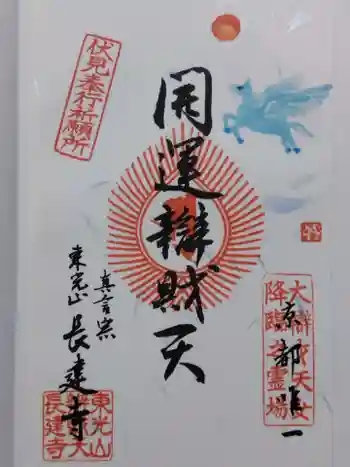 大辯才天女
降臨之霊場
京都唯一
開運辯財天
伏見奉行祈願所
真言宗
東光山 長建寺
東光山
辯財天
長建寺